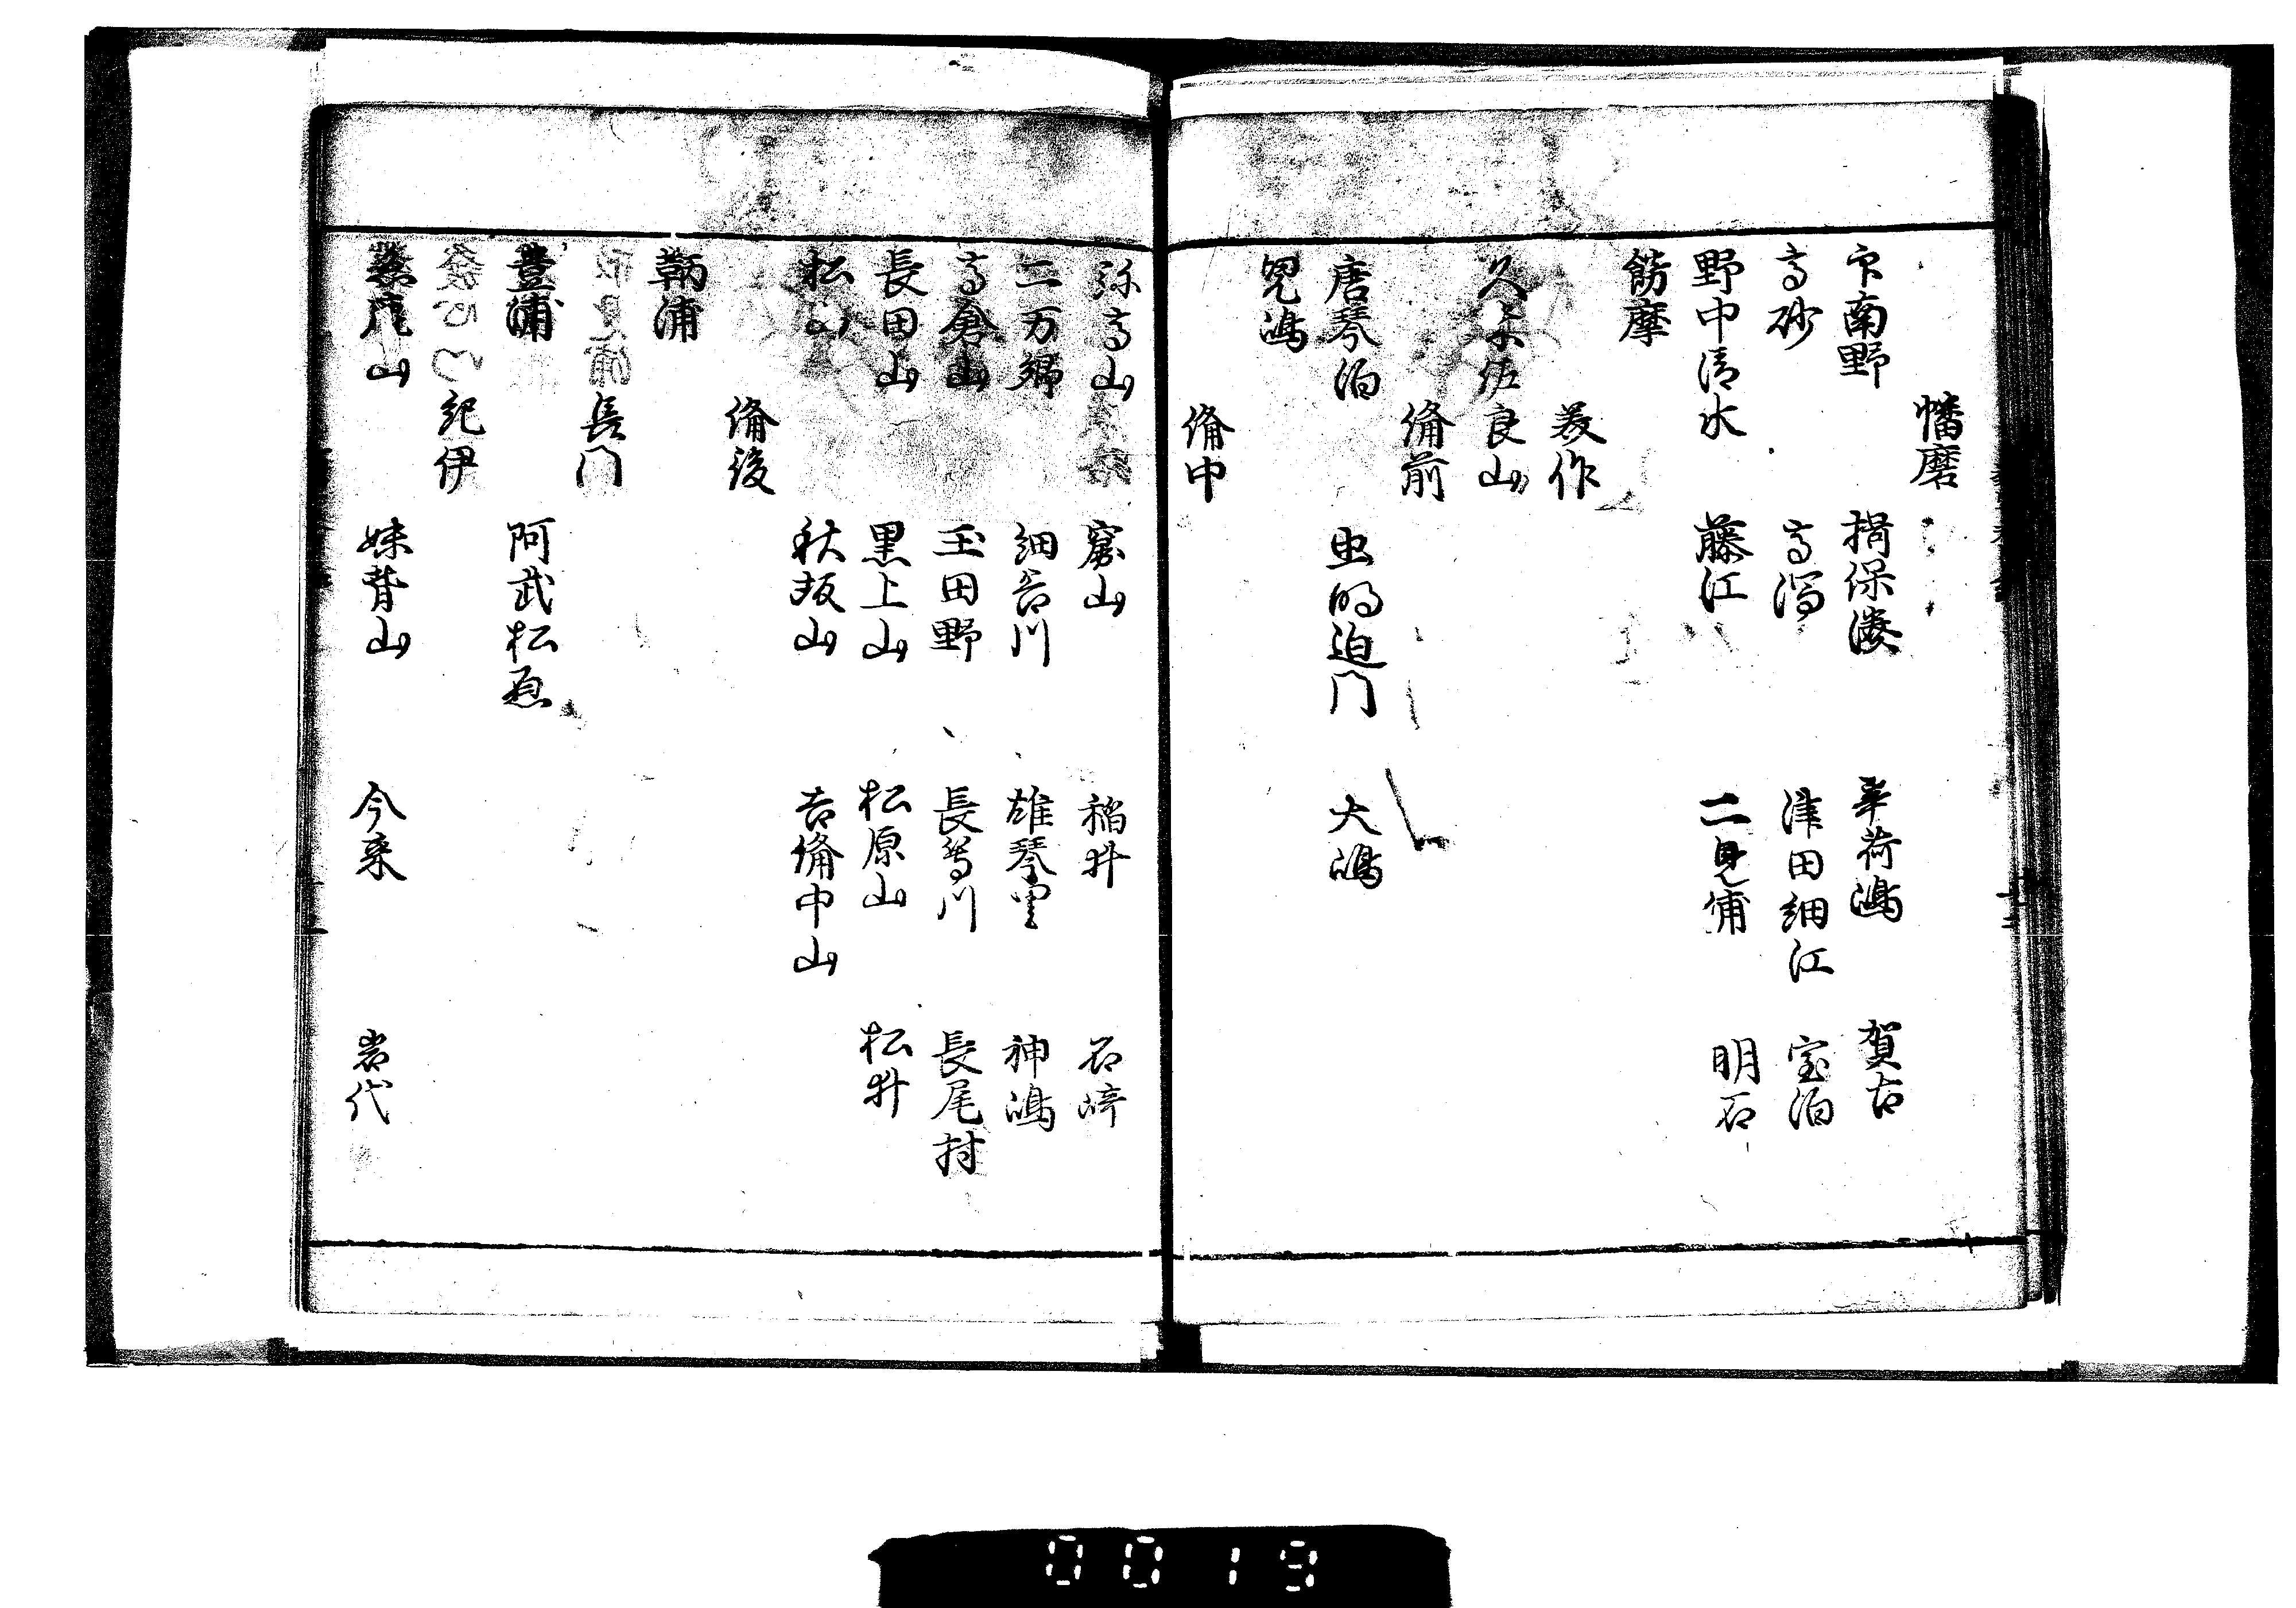 幡磨
印南野 揖保湊 辛荷嶋 賀古
高砂 高潟 津田細江 室泊
野中清水 藤江 二見浦 明石
餝摩
美作
久米佐良山
備前
唐琴泊 虫明迫门 大嶋
児嶋
備中
弥高山 窪山 稲井 石崎
二万郷 細谷川 雄琴里 神嶋
高倉山 玉田野 長等川 長尾村
長田山 黒上山 松原山 松井
松山 秋坂山 吉備中山
備後
鞆浦
長门
豊浦 阿武松原
紀伊
妹背山 今来 岩代
0019